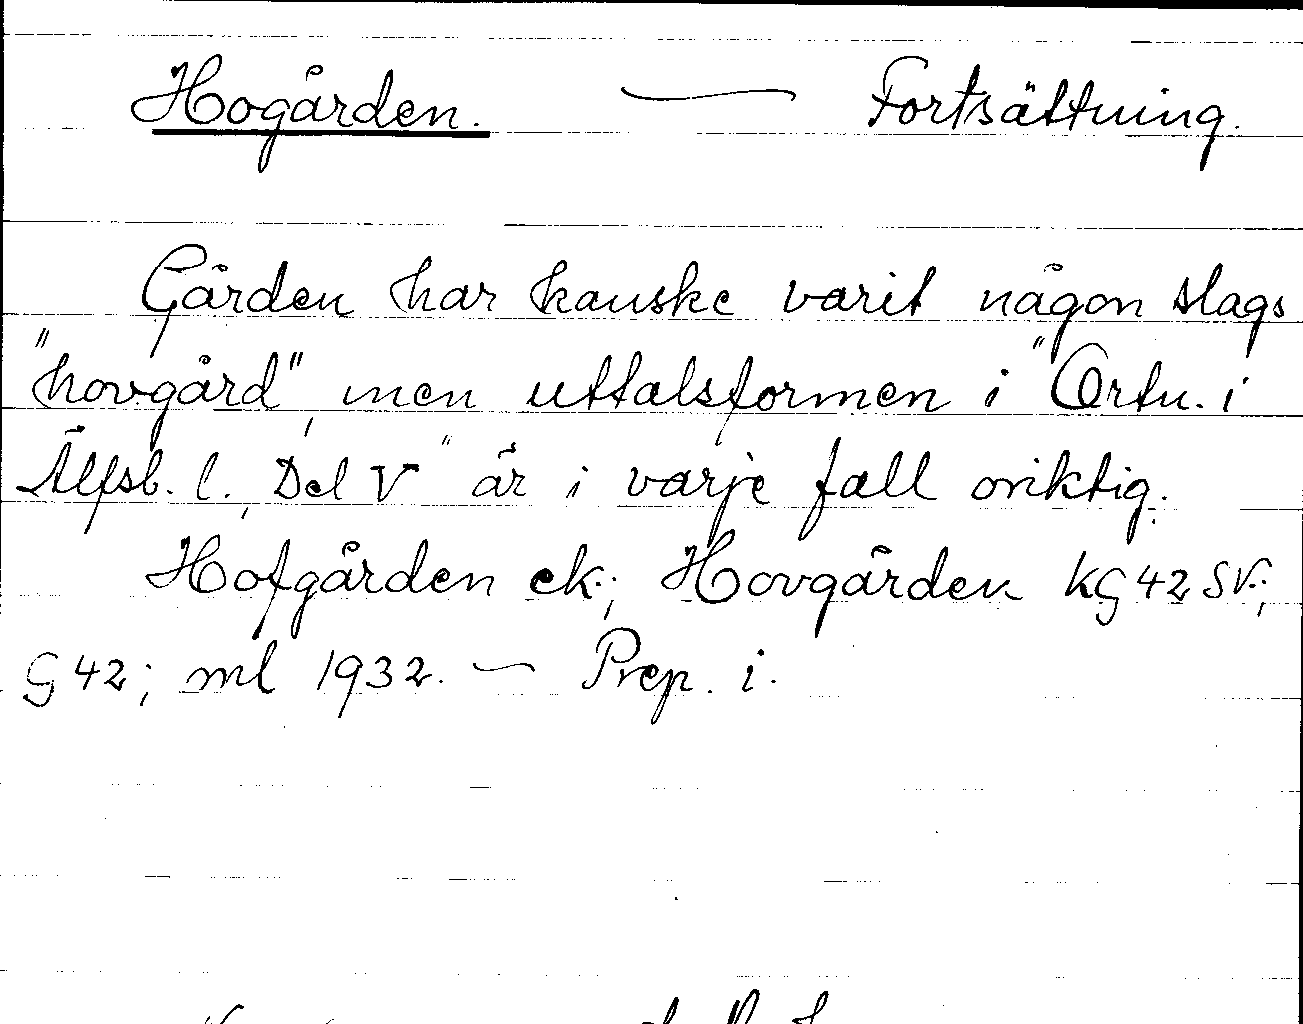 Hogården. — Fortsättning.
Gården har kanske varit någon slags
"hovgård", men uttalsformen i "Ortn. i
Älfsb. l. Del V" är i varje fall oriktig.
Hofgården ek.; Hovgården KG 42 SV.;
G 42; ml 1932. — Prep. i.